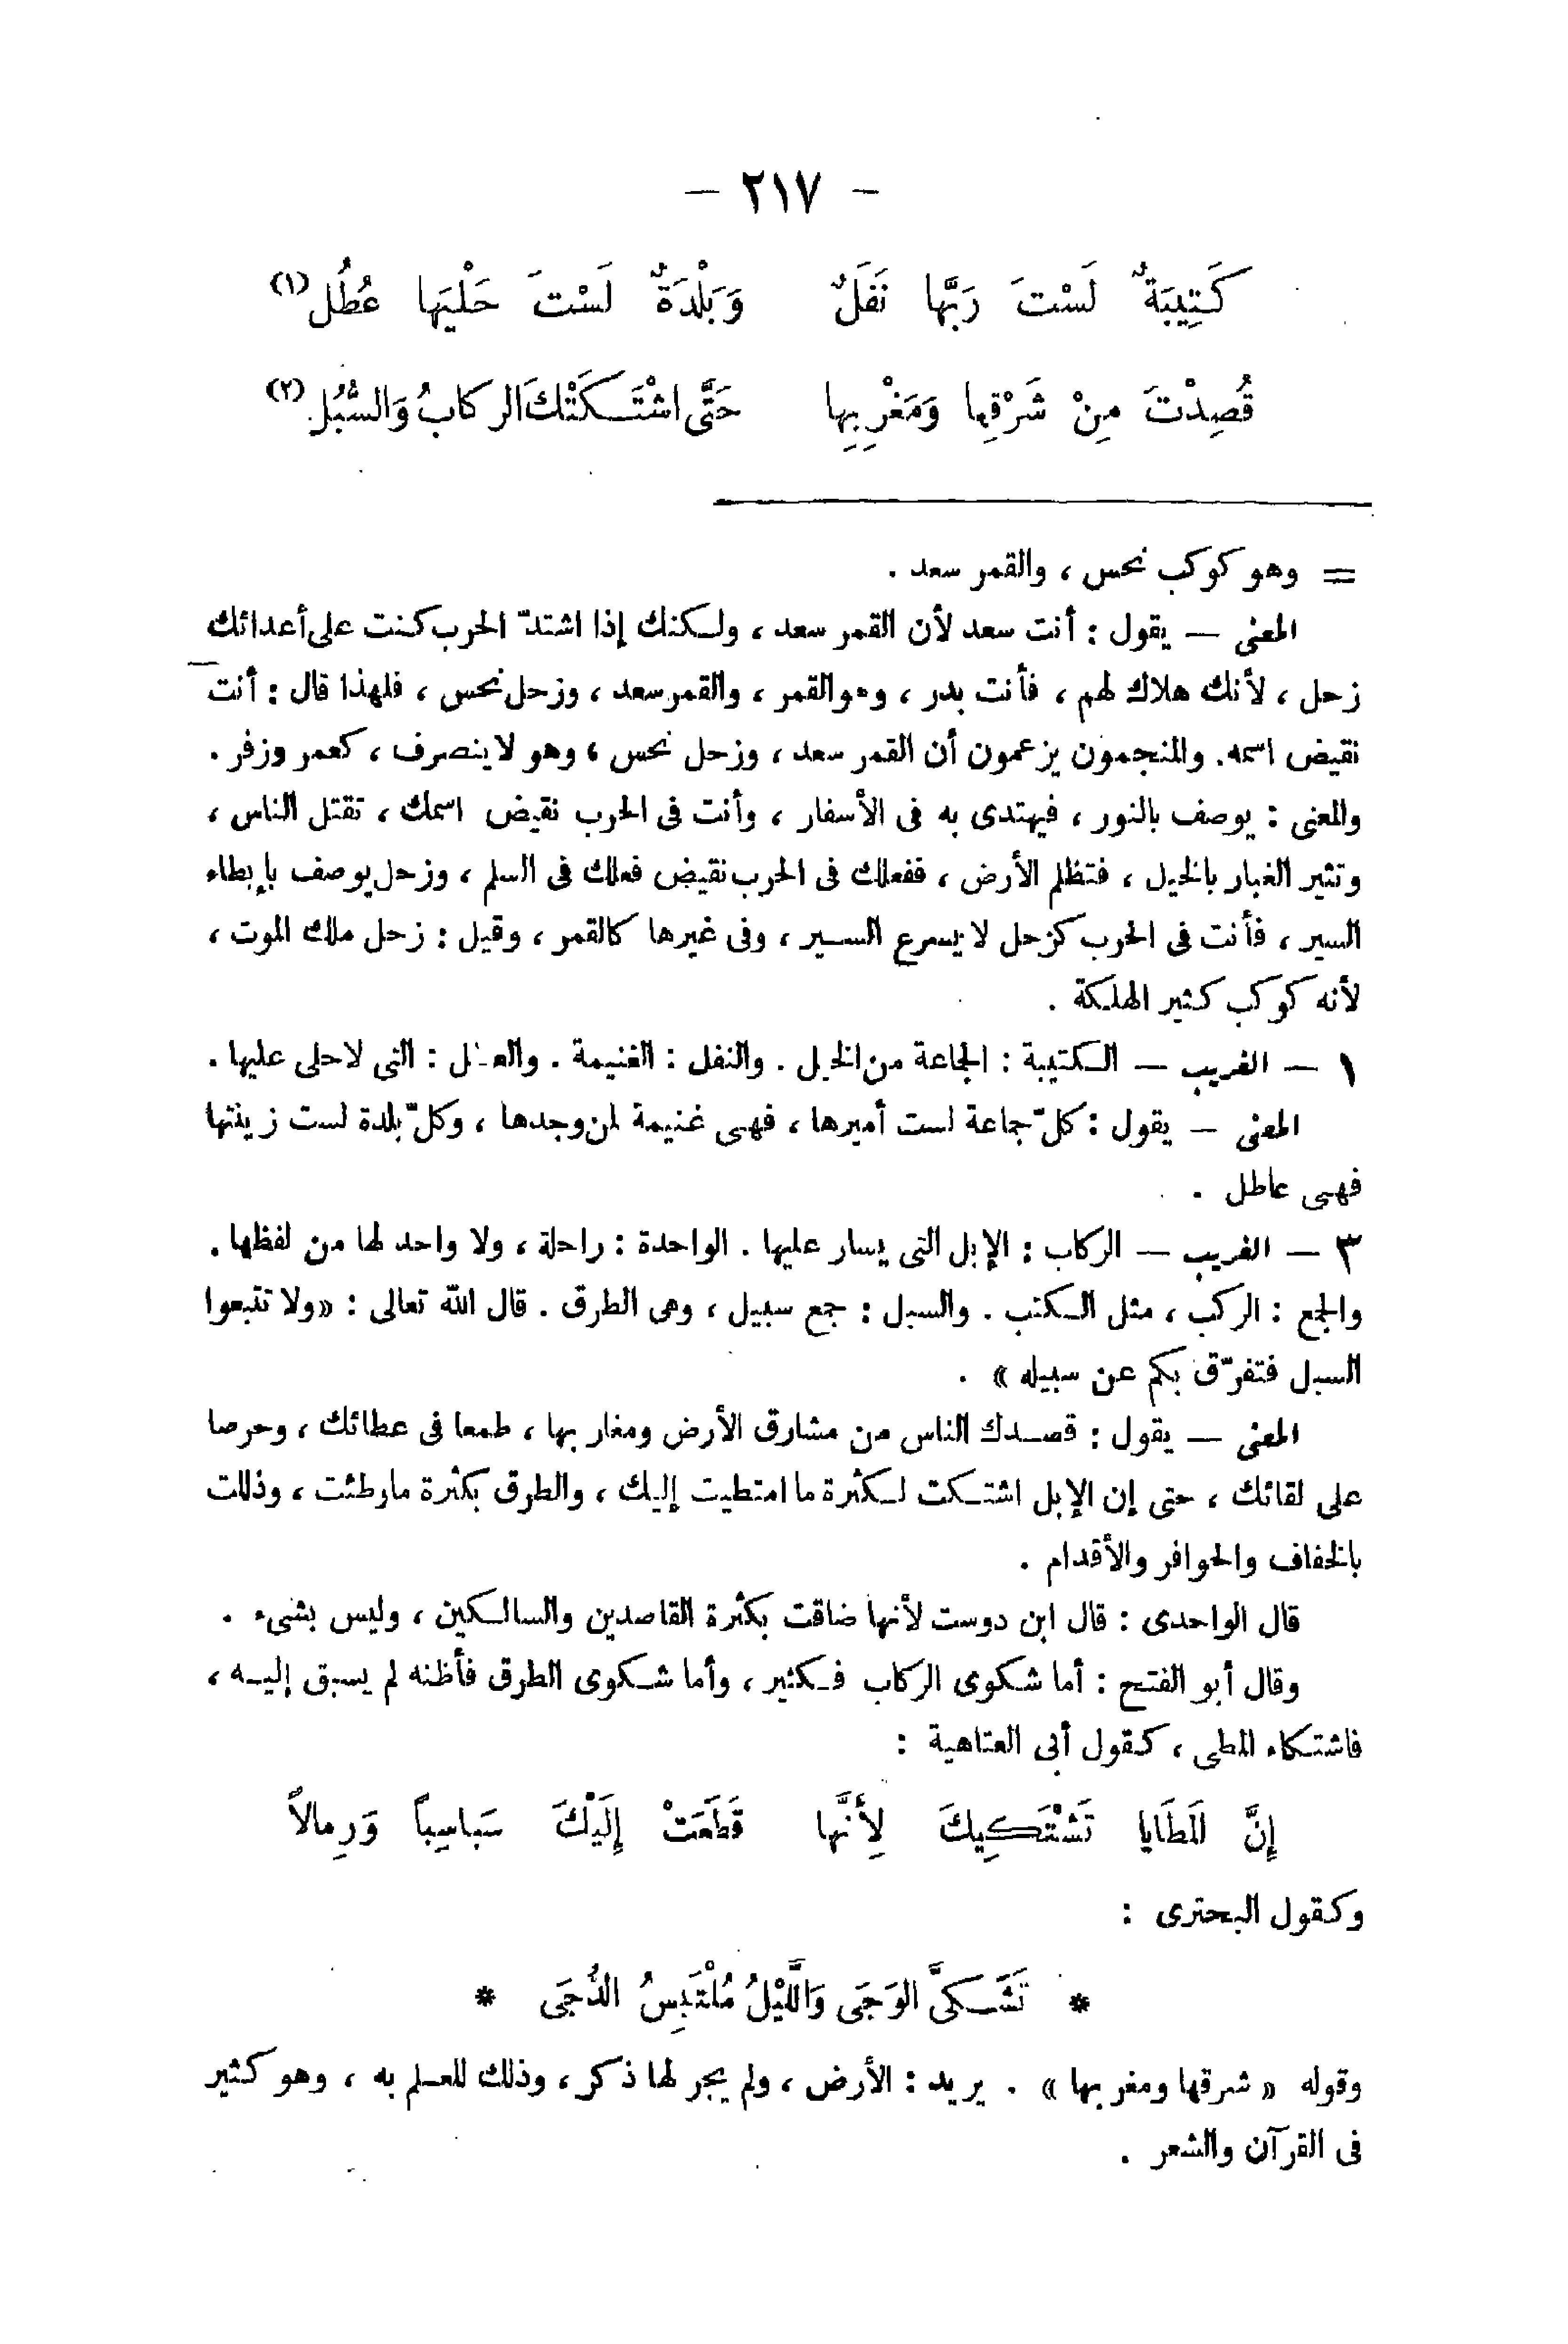 — ٢١٧ —
كَتِيبَةٌ لَسْتَ رَبَّها نَفَلٌ وَبَلْدَةٌ لَسْتَ حَلْيَها عُطُل (١)
قُصِدْتَ مِنْ شَرْقِها وَمَغْرِبِها حَتَّى اشْتَكَتْكَ الركابُ وَالسُّبُل (٢)
= وهو كوكب نحس ، والقمر سعد .
المعنى — يقول : أنت سعد لأن القمر سعد ، ولكنك إذا اشتدّ الحرب كنت على أعدائك
زحل ، لأنك هلاك لهم ، فأنت بدر ، وهو القمر ، والقمر سعد ، وزحل نحس ، فلهذا قال : أنت
نقيض اسمه. والمنجمون يزعمون أن القمر سعد ، وزحل نحس ، وهو لا ينصرف ، كعمر وزفر .
والمعنى : يوصف بالنور ، فيهتدى به فى الأسفار ، وأنت فى الحرب نقيض اسمك ، تقتل الناس ،
وتثير الغبار بالخيل ، فتظلم الأرض ، ففعلك فى الحرب نقيض فعلك فى السلم ، وزحل يوصف بإبطاء
السير ، فأنت فى الحرب كزحل لا يسرع السير ، وفى غيرها كالقمر ، وقيل : زحل ملك الموت ،
لأنه كوكب كثير الهلكة .
١ — الغريب — الكتيبة : الجماعة من الخيل . والنفل : الغنيمة . والعطل : التى لا حلى عليها .
المعنى — يقول : كلّ جماعة لست أميرها ، فهى غنيمة لمن وجدها ، وكلّ بلدة لست زينتها
فهى عاطل .
٣ — الغريب — الركاب : الإبل التى يسار عليها . الواحدة : راحلة ، ولا واحد لها من لفظها .
والجمع : الركب ، مثل الكتب . والسبل : جمع سبيل ، وهى الطرق . قال الله تعالى : «ولا تتبعوا
السبل فتفرّق بكم عن سبيله » .
المعنى — يقول : قصدك الناس من مشارق الأرض ومغاربها ، طمعا فى عطائك ، وحرصا
على لقائك ، حتى إن الإبل اشتكت لكثرة ما امتطيت إليك ، والطرق بكثرة ما وطئت ، وذللت
بالخفاف والحوافر والأقدام .
قال الواحدى : قال ابن دوست لأنها ضاقت بكثرة القاصدين والسالكين ، وليس بشىء .
وقال أبو الفتح : أما شكوى الركاب فكثير ، وأما شكوى الطرق فأظنه لم يسبق إليه ،
فاشتكاء المطى ، كقول أبى العتاهية :
إِنَّ المَطَايا تَشْتَكِيكَ لِأَنَّها قَطَعَتْ إِلَيْكَ سَباسِباً وَرِمالاً
وكقول البحترى :
* تَشَكَّى الوَجَى وَاللَّيْلُ مُلْتَبِسُ الدُّجَى *
وقوله « شرقها ومغربها » . يريد : الأرض ، ولم يجر لها ذكر ، وذلك للعلم به ، وهو كثير
فى القرآن والشعر .